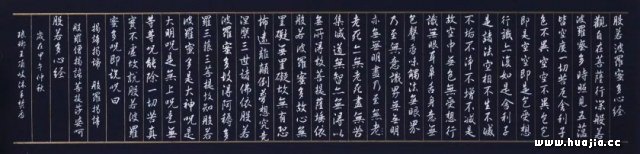 般若波羅蜜多心經
觀自在菩薩行深般若
波羅蜜多時照見五蘊
皆空度一切苦厄舍利子
色不異空空不異色色
即是空空即是色受想
行識亦復如是舍利子
是諸法空相不生不滅
不垢不淨不增不減是
故空中無色無受想行
識無眼耳鼻舌身意無
色聲香味觸法無眼界
乃至無意識界無無明
亦無無明盡乃至無老
老死亦無老死盡無苦
集滅道無智亦無得以
無所得故菩提薩埵依
般若波羅蜜多故心無
罣礙無罣礙故無有恐
怖遠離顛倒夢想究竟
涅槃三世諸佛依般若
波羅蜜多故得阿耨多
羅三藐三菩提故知般若
波羅蜜多是大神咒是
大明咒是無上咒是無
等等咒能除一切苦真
實不虛故說般若波羅
蜜多咒即說咒曰
揭諦揭諦 般羅揭諦
般羅僧揭諦菩提薩婆訶
般若多心經
歲在甲午仲秋
www.huajia.cc